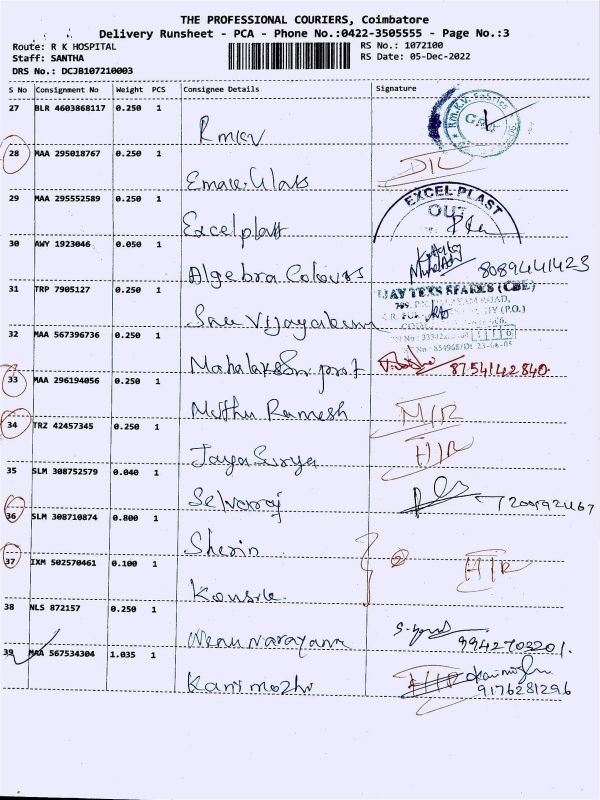 THE PROFESSIONAL COURIERS, Coimbatore
Delivery Runsheet - PCA - Phone No.:0422-3505555 - Page No.:3
Route: R K HOSPITAL
RS No.: 1072100
Staff: SANTHA
RS Date: 05-Dec-2022
DRS No.: DCJB107210003
S No Consignment No Weight PCS Consignee Details Signature
27 BLR 4603868117 0.250 1
Rmkv
28 MAA 295018767 0.250 1
29 MAA 295552589 0.250 1
EXCEL PLAST
Excel plast
30 AWY 1923046 0.050 1
Algebra Colours 8089441423
31 TRP 7905127 0.250 1
Sree Vijayakumar
32 MAA 567396736 0.250 1
Mahalakshmi prof 8754142840
33 MAA 296194056 0.250 1
Muthu Ramesh
34 TRZ 42457345 0.250 1
Jaya Surya
35 SLM 308752579 0.040 1
Selvaraj
36 SLM 308710874 0.800 1
Sherin
37 IXM 502570461 0.100 1
38 NLS 872157 0.250 1
Venu Narayana 9942703201.
39 MAA 567534304 1.035 1
Kani mozhi 9176281296